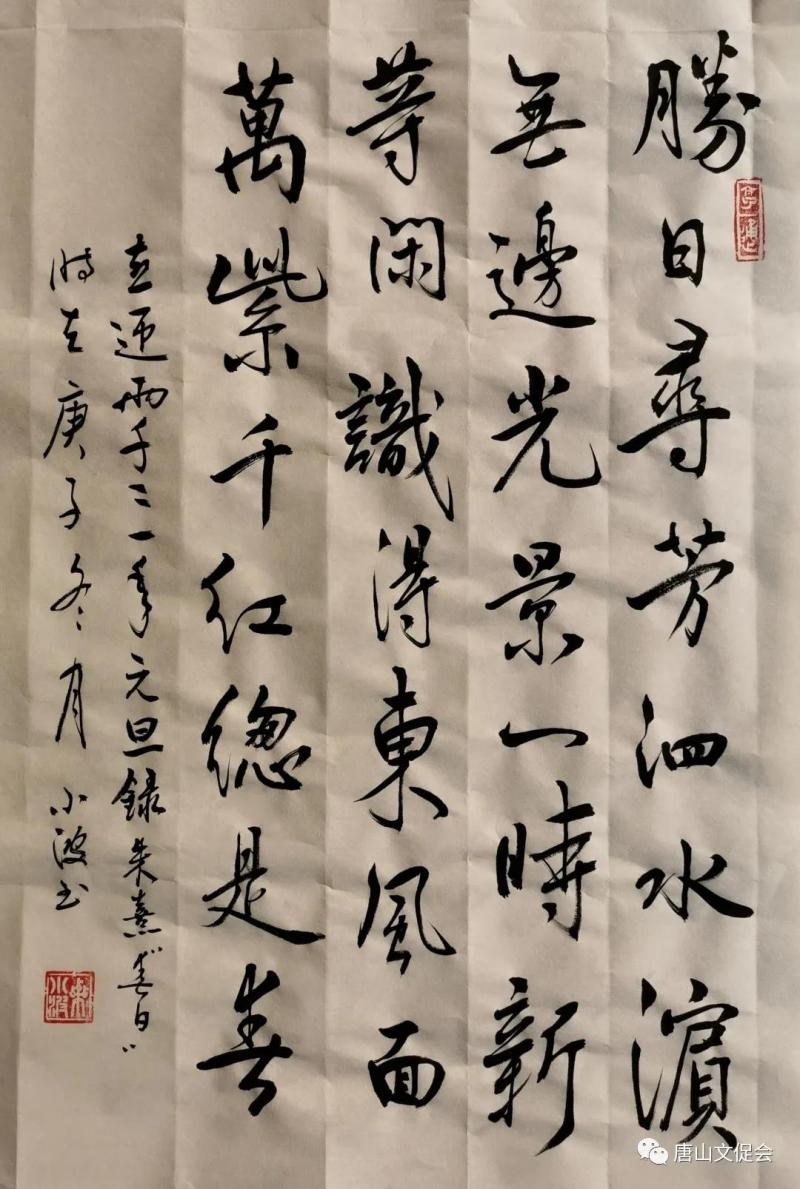 勝日尋芳泗水濱
無邊光景一時新
等閑識得東風面
萬紫千紅總是春
喜迎兩千二一年元旦錄朱熹“春日”
時在庚子冬月 小波書
唐山文促会